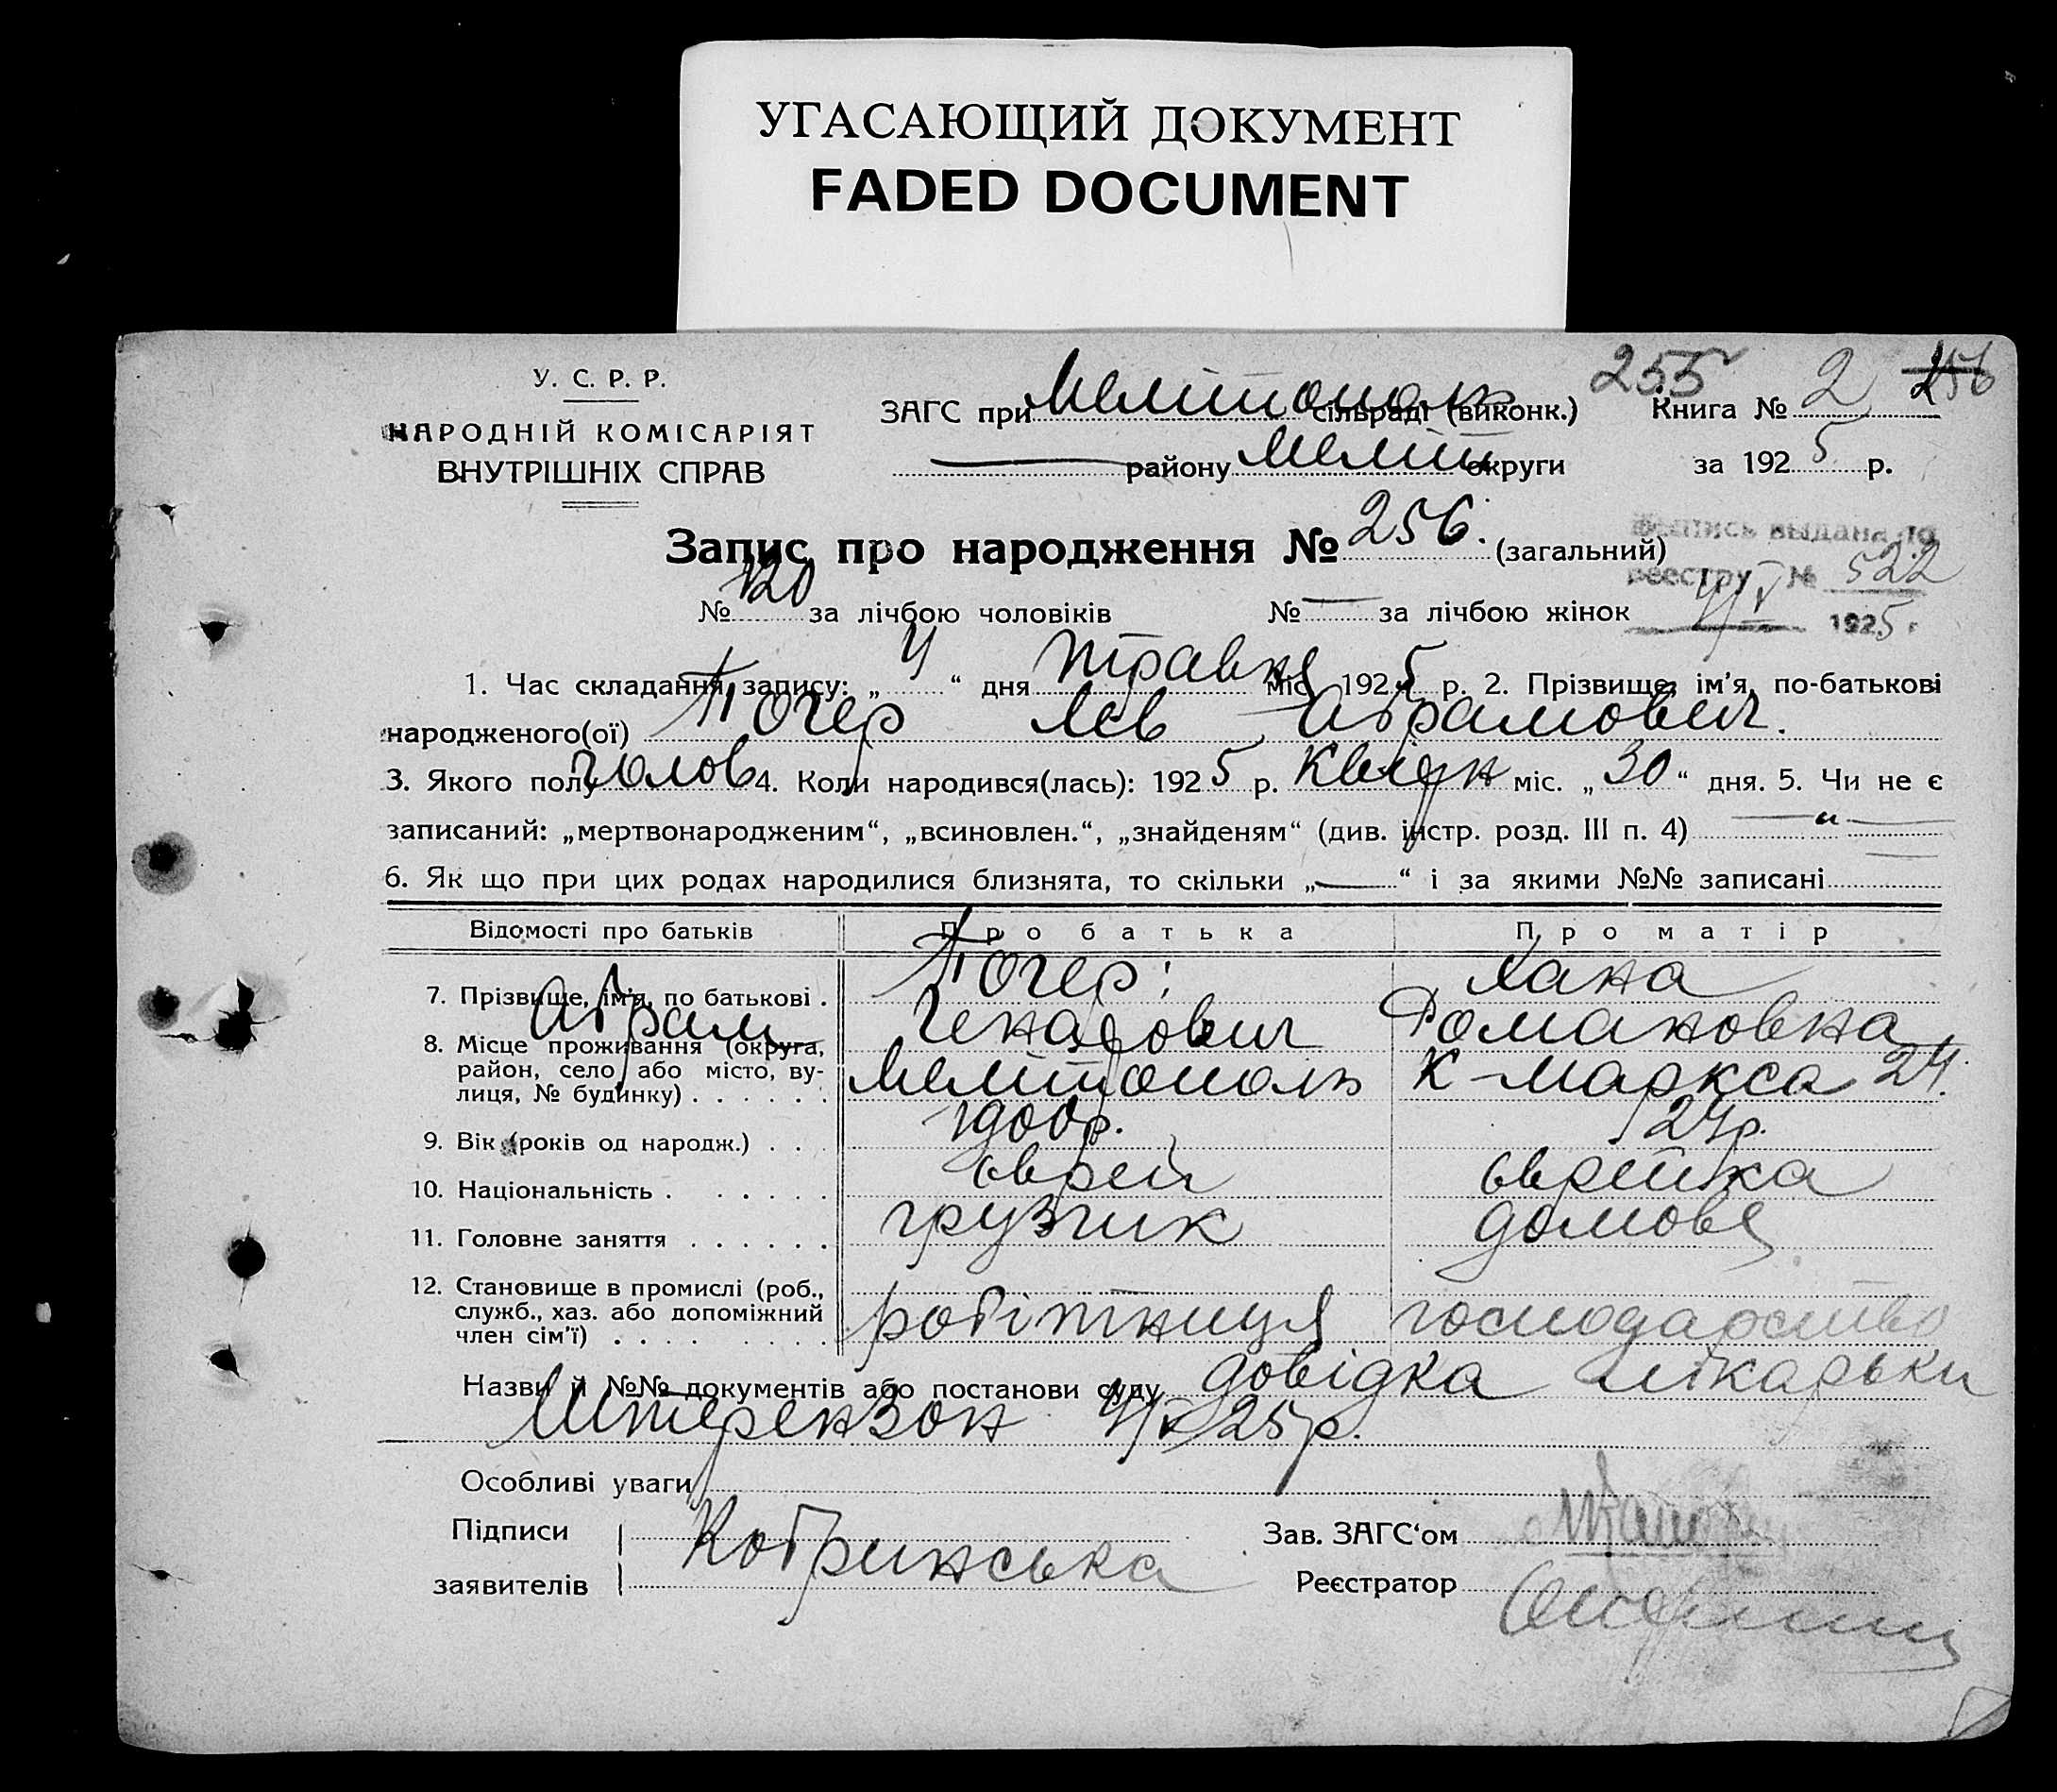 УГАСАЮЩИЙ ДОКУМЕНТ
FADED DOCUMENT
У. С. Р. Р.
НАРОДНІЙ КОМІСАРІЯТ
ВНУТРІШНІХ СПРАВ
255 256
ЗАГС при Мелітополь сільраді (виконк.) Книга № 2
— району Меліт округи за 1925 р.
Запис про народження № 256. (загальний)
выдана по
реестру № 522
4/V 1925 г
№ 120 за лічбою чоловіків № — за лічбою жінок
1. Час складання запису: „4“ дня травня міс. 1925 р. 2. Прізвище, ім'я, по-батькові
народженого(ої) Точер Лев Абрамович.
3. Якого полу чолов 4. Коли народився(лась): 1925 р. Квідн міс. „30“ дня. 5. Чи не є
записаний: „мертвонародженим“, „всиновлен.“, „знайденям“ (див. інстр. розд. III п. 4) — „ —
6. Як що при цих родах народилися близнята, то скільки „—“ і за якими №№ записані
Відомості про батьків Про батька Про матір
7. Прізвище, ім'я, по батькові . Точер; Хана
Абрам Романовна
8. Місце проживання (округа, район, село або місто, вулиця, № будинку) . . . . . . Мелітополь К-Маркса 24.
9. Вік (років од народж.) . . . 1900р. 24р.
10. Національність . . . . . . Єврей Єврейка
11. Головне заняття . . . . . . грузчик домове
12. Становище в промислі (роб., служб., хаз. або допоміжний член сім'ї) . . . . робітниця господарство
Назви й №№ документів або постанови суду довідка лікарьки
Штерензон 4/V 25р.
Особливі уваги
Підписи Кобринська Зав. ЗАГС'ом
заявителів Реєстратор